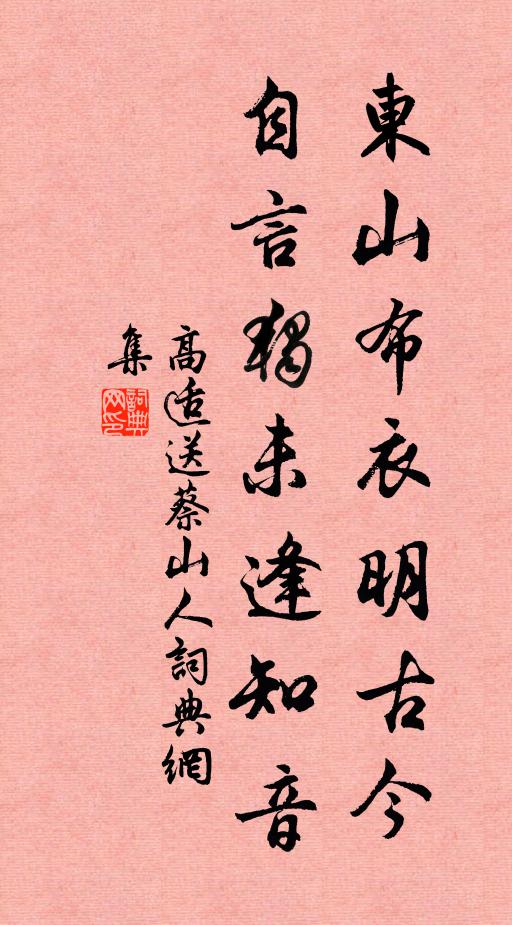 東山布衣明古今
自言獨未逢知音
高适送蔡山人詞典網
集
詞典網印